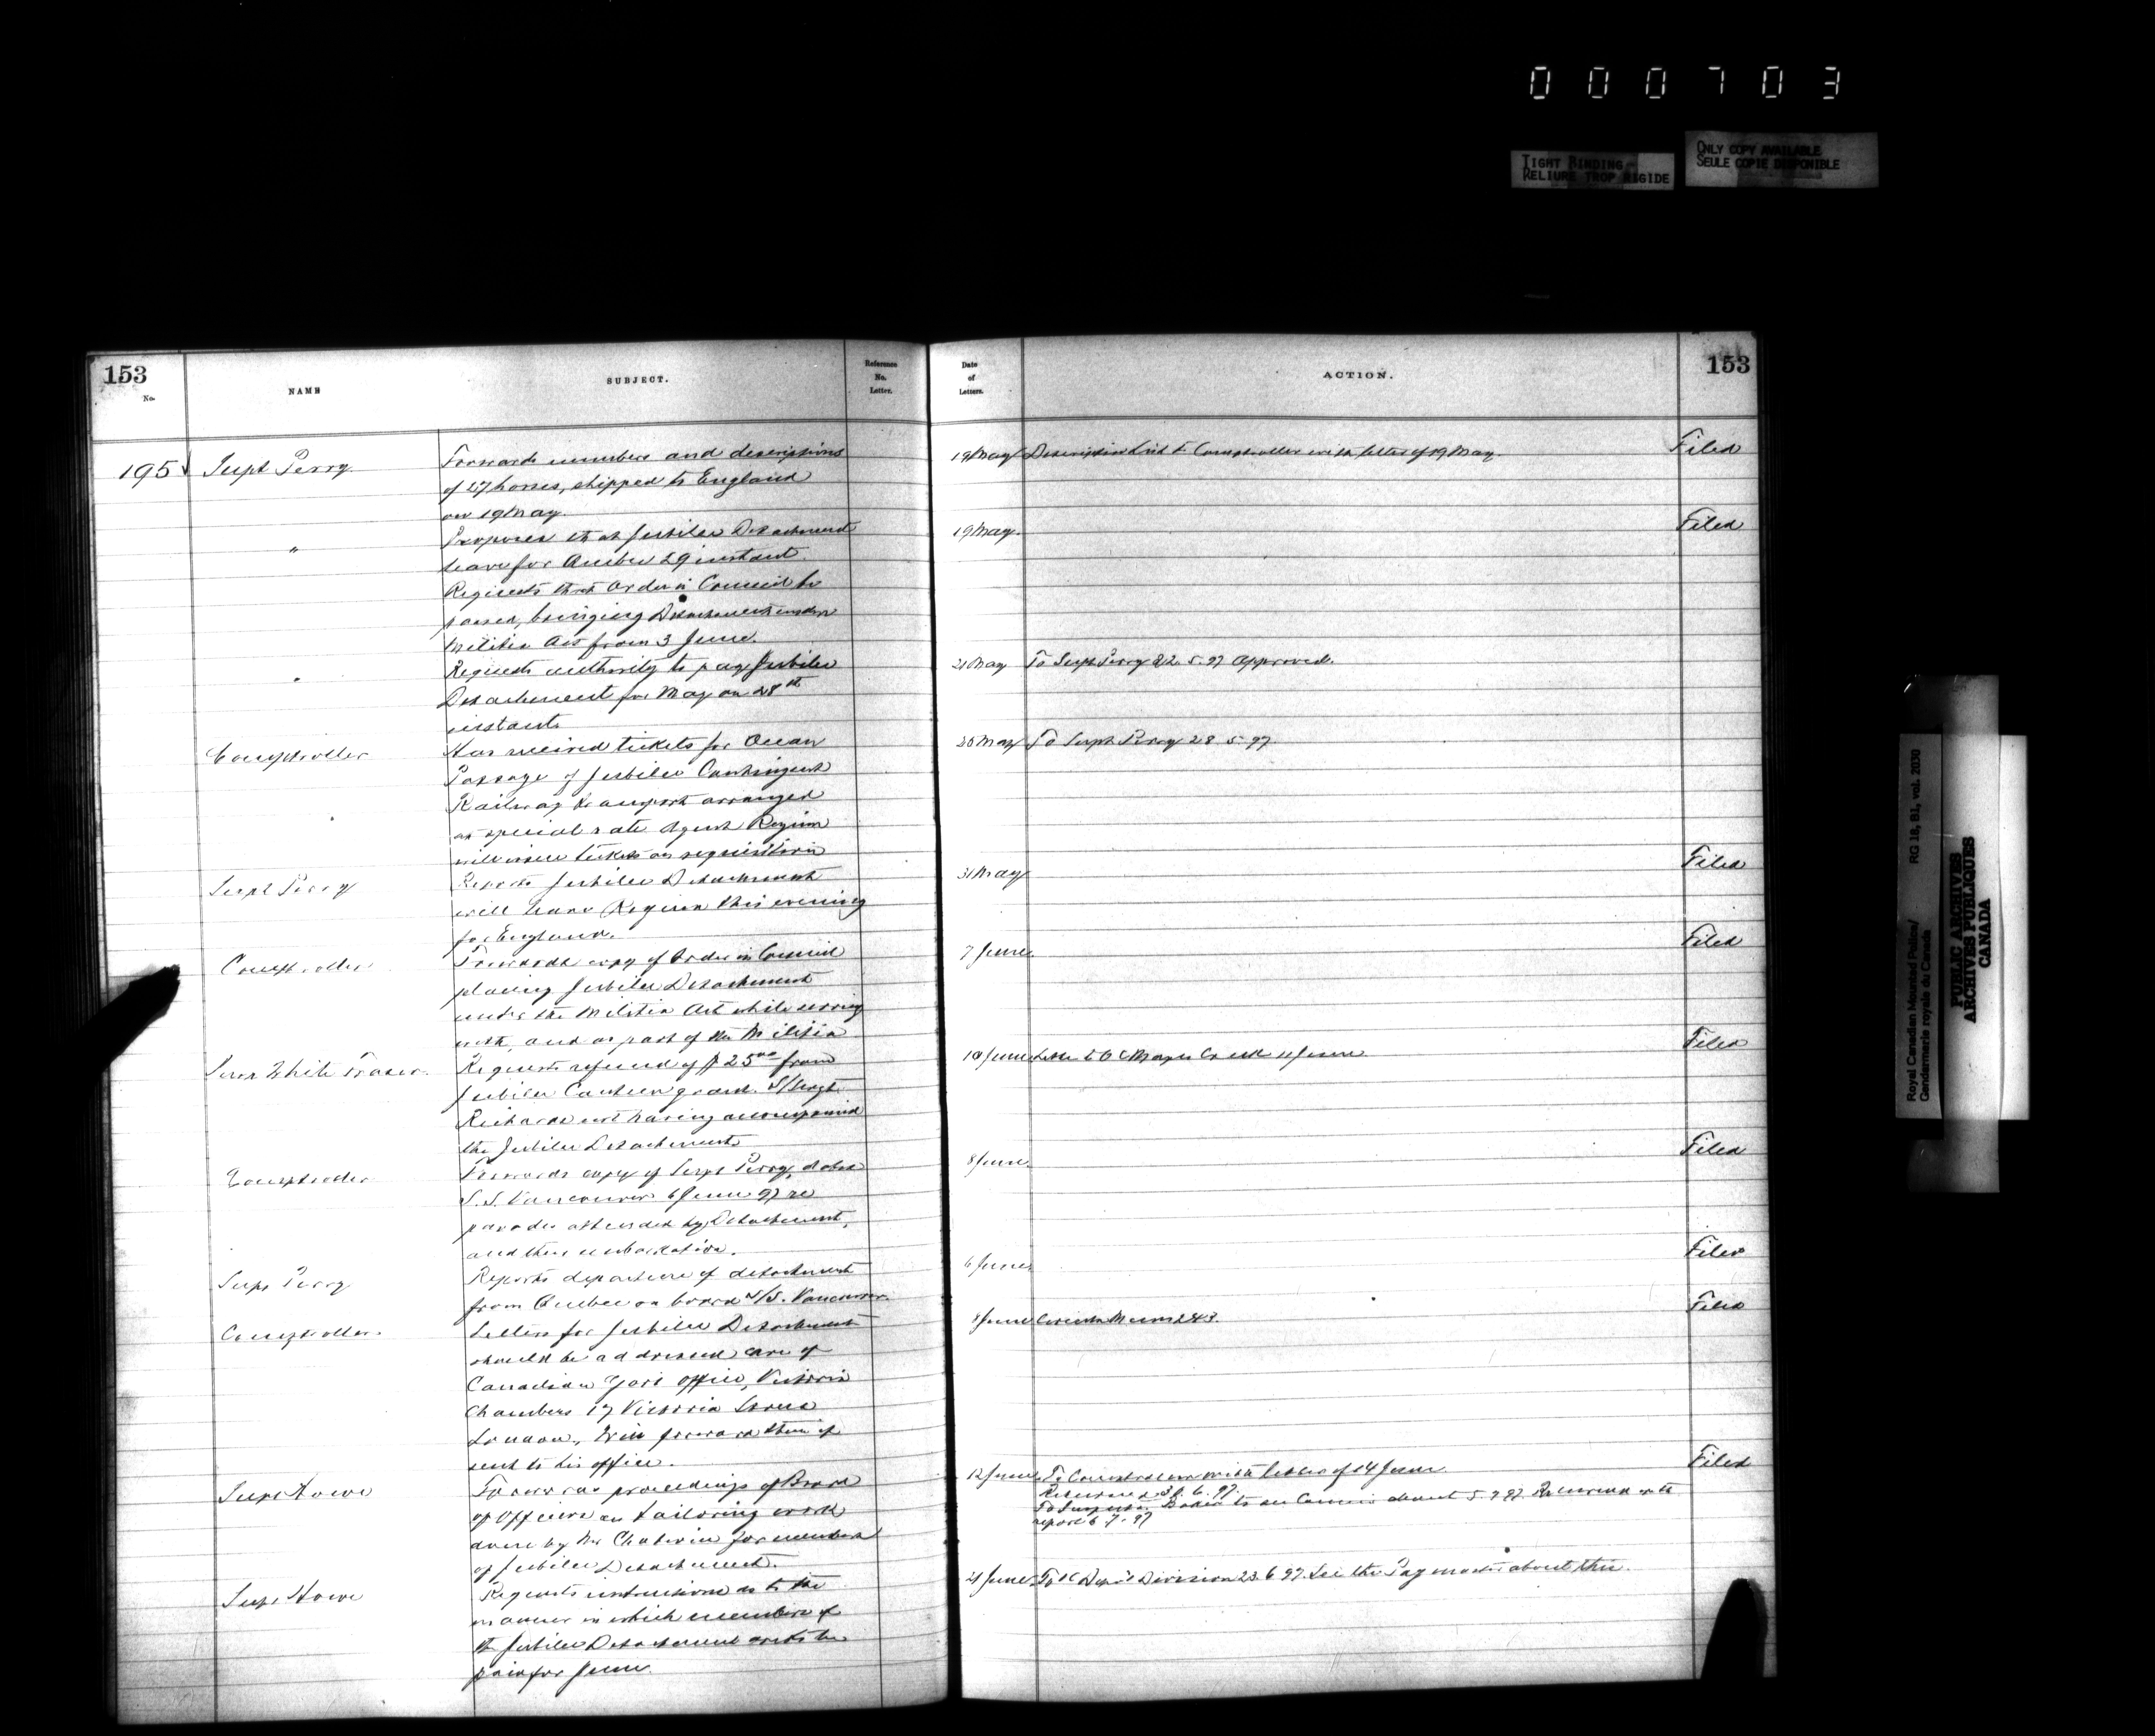 000703
TIGHT BINDING
RELIURE TROP RIGIDE
ONLY COPY AVAILABLE
SEULE COPIE DISPONIBLE
153
No.
NAME
SUBJECT.
Reference
No.
Letter.
Date
of
Letters.
ACTION.
153
195 Supt Perry
Forwards numbers and descriptions
of 27 horses, shipped to England
on 19 May.
19 May Description List to Comptroller with letter of 19 May.
Filed
"
Proposes that Jubilee Detachment
leave for Quebec 29 instant.
Requests that Order in Council be
passed, bringing Detachment under
Militia Act from 3 June.
19 May.
Filed
"
Requests authority to pay Jubilee
Detachment for May on 28th
instant.
21 May To Supt Perry 22.5.97 approved.
Comptroller
Has received tickets for Ocean
Passage of Jubilee Contingent
Railway transport arranged
at special rate Agent Regina
will issue tickets on requisition
To Supt Perry 28.5.97
Supt Perry
Reports Jubilee Detachment
will leave Regina this evening
for England.
31 May
Filed
Comptroller
Forwards copy of Order in Council
placing Jubilee Detachment
under the Militia Act while serving
with, and as part of the Militia
7 June.
Filed
White Fraser.
Requests refund of $25.00 from
Jubilee Canteen grant. S/Sergt
Richards not having accompanied
the Jubilee Detachment.
10 June Letter to O C Maple Creek 11 June.
Filed
Comptroller
Forwards copy of Supt Perry, dated
S.S. Vancouver 6 June 97 re
parades attended by Detachment,
and their embarkation.
8 June.
Filed
Supt Perry
Reports departure of detachment
from Quebec on board S/S. Vancouver.
6 June.
Filed
Comptroller.
Letters for Jubilee Detachment
should be addressed care of
Canadian Govt Office, Victoria
Chambers 17 Victoria Street
London, Will forward them if
sent to his office.
8 June Circular Memo 243.
Filed
Supt Howe
Forwards proceedings of Board
of Officers on tailoring work
done by Mr for members
of Jubilee Detachment.
12 June. To Comptroller with letter of 14 June.
Returned 6.97.
To to see about 5.7.97. Returned with
report 6.7.97
Filed
Supt Howe
Requests instructions as to the
manner in which members of
the Jubilee Detachment are to be
paid for June.
21 June. To OC Depot Division 23.6.97. See the Paymaster about this.
Royal Canadian Mounted Police/
Gendarmerie royale du Canada
RG 18, B1, vol. 2030
PUBLIC ARCHIVES
ARCHIVES PUBLIQUES
CANADA